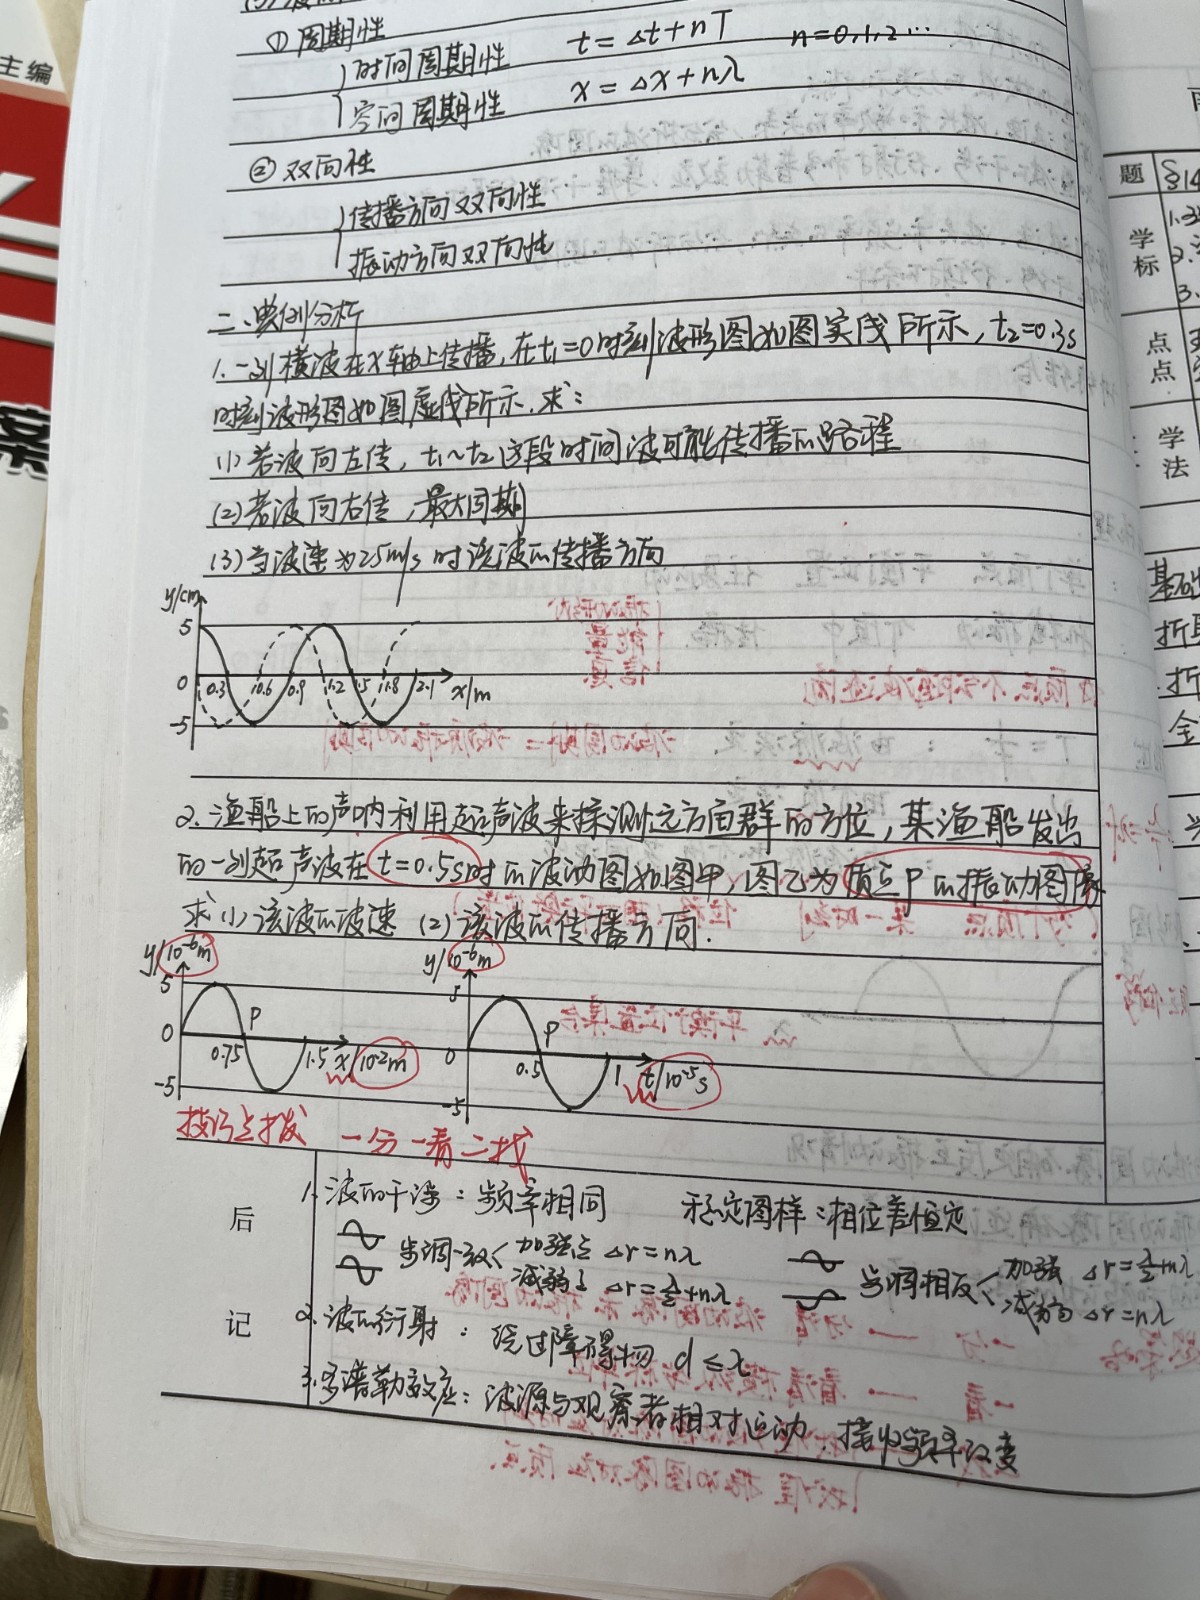 ① 周期性
时间周期性 t=Δt+nT n=0,1,2…
空间周期性 x=Δx+nλ
② 双向性
传播方向双向性
振动方向双向性
二、典例分析
1.一列横波在x轴上传播,在t₁=0时刻波形图如图实线所示,t₂=0.3s
时刻波形图如图虚线所示.求:
(1)若波向左传,t₁~t₂这段时间波可能传播的路程
(2)若波向右传,最大周期
(3)当波速为25m/s时该波的传播方向
y/cm
5
0 0.3 0.6 0.9 1.2 1.5 1.8 2.1 x/m
-5
2.渔船上的声呐利用超声波来探测远方鱼群的方位,某渔船发出
的一列超声波在t=0.5s时的波动图如图甲,图乙为质点P的振动图像
求(1)该波的波速 (2)该波的传播方向.
y/10⁻⁶m y/10⁻⁶m
5 5
0 P 0.75 1.5 x/10⁻²m 0 P 0.5 1 t/10⁻⁵s
-5 -5
技巧点拨 一分一看二找
后
记
1.波的干涉:频率相同 稳定图样:相位差恒定
步调一致 加强点 Δr=nλ 步调相反 加强 Δr=λ/2+nλ
减弱 Δr=λ/2+nλ 减弱 Δr=nλ
2.波的衍射:绕过障碍物 d≤λ
3.多普勒效应:波源与观察者相对运动,接收频率改变
主编
案
题 §14
学
标
1.
2.
3.
点
点
学
法
基础
折
折
金